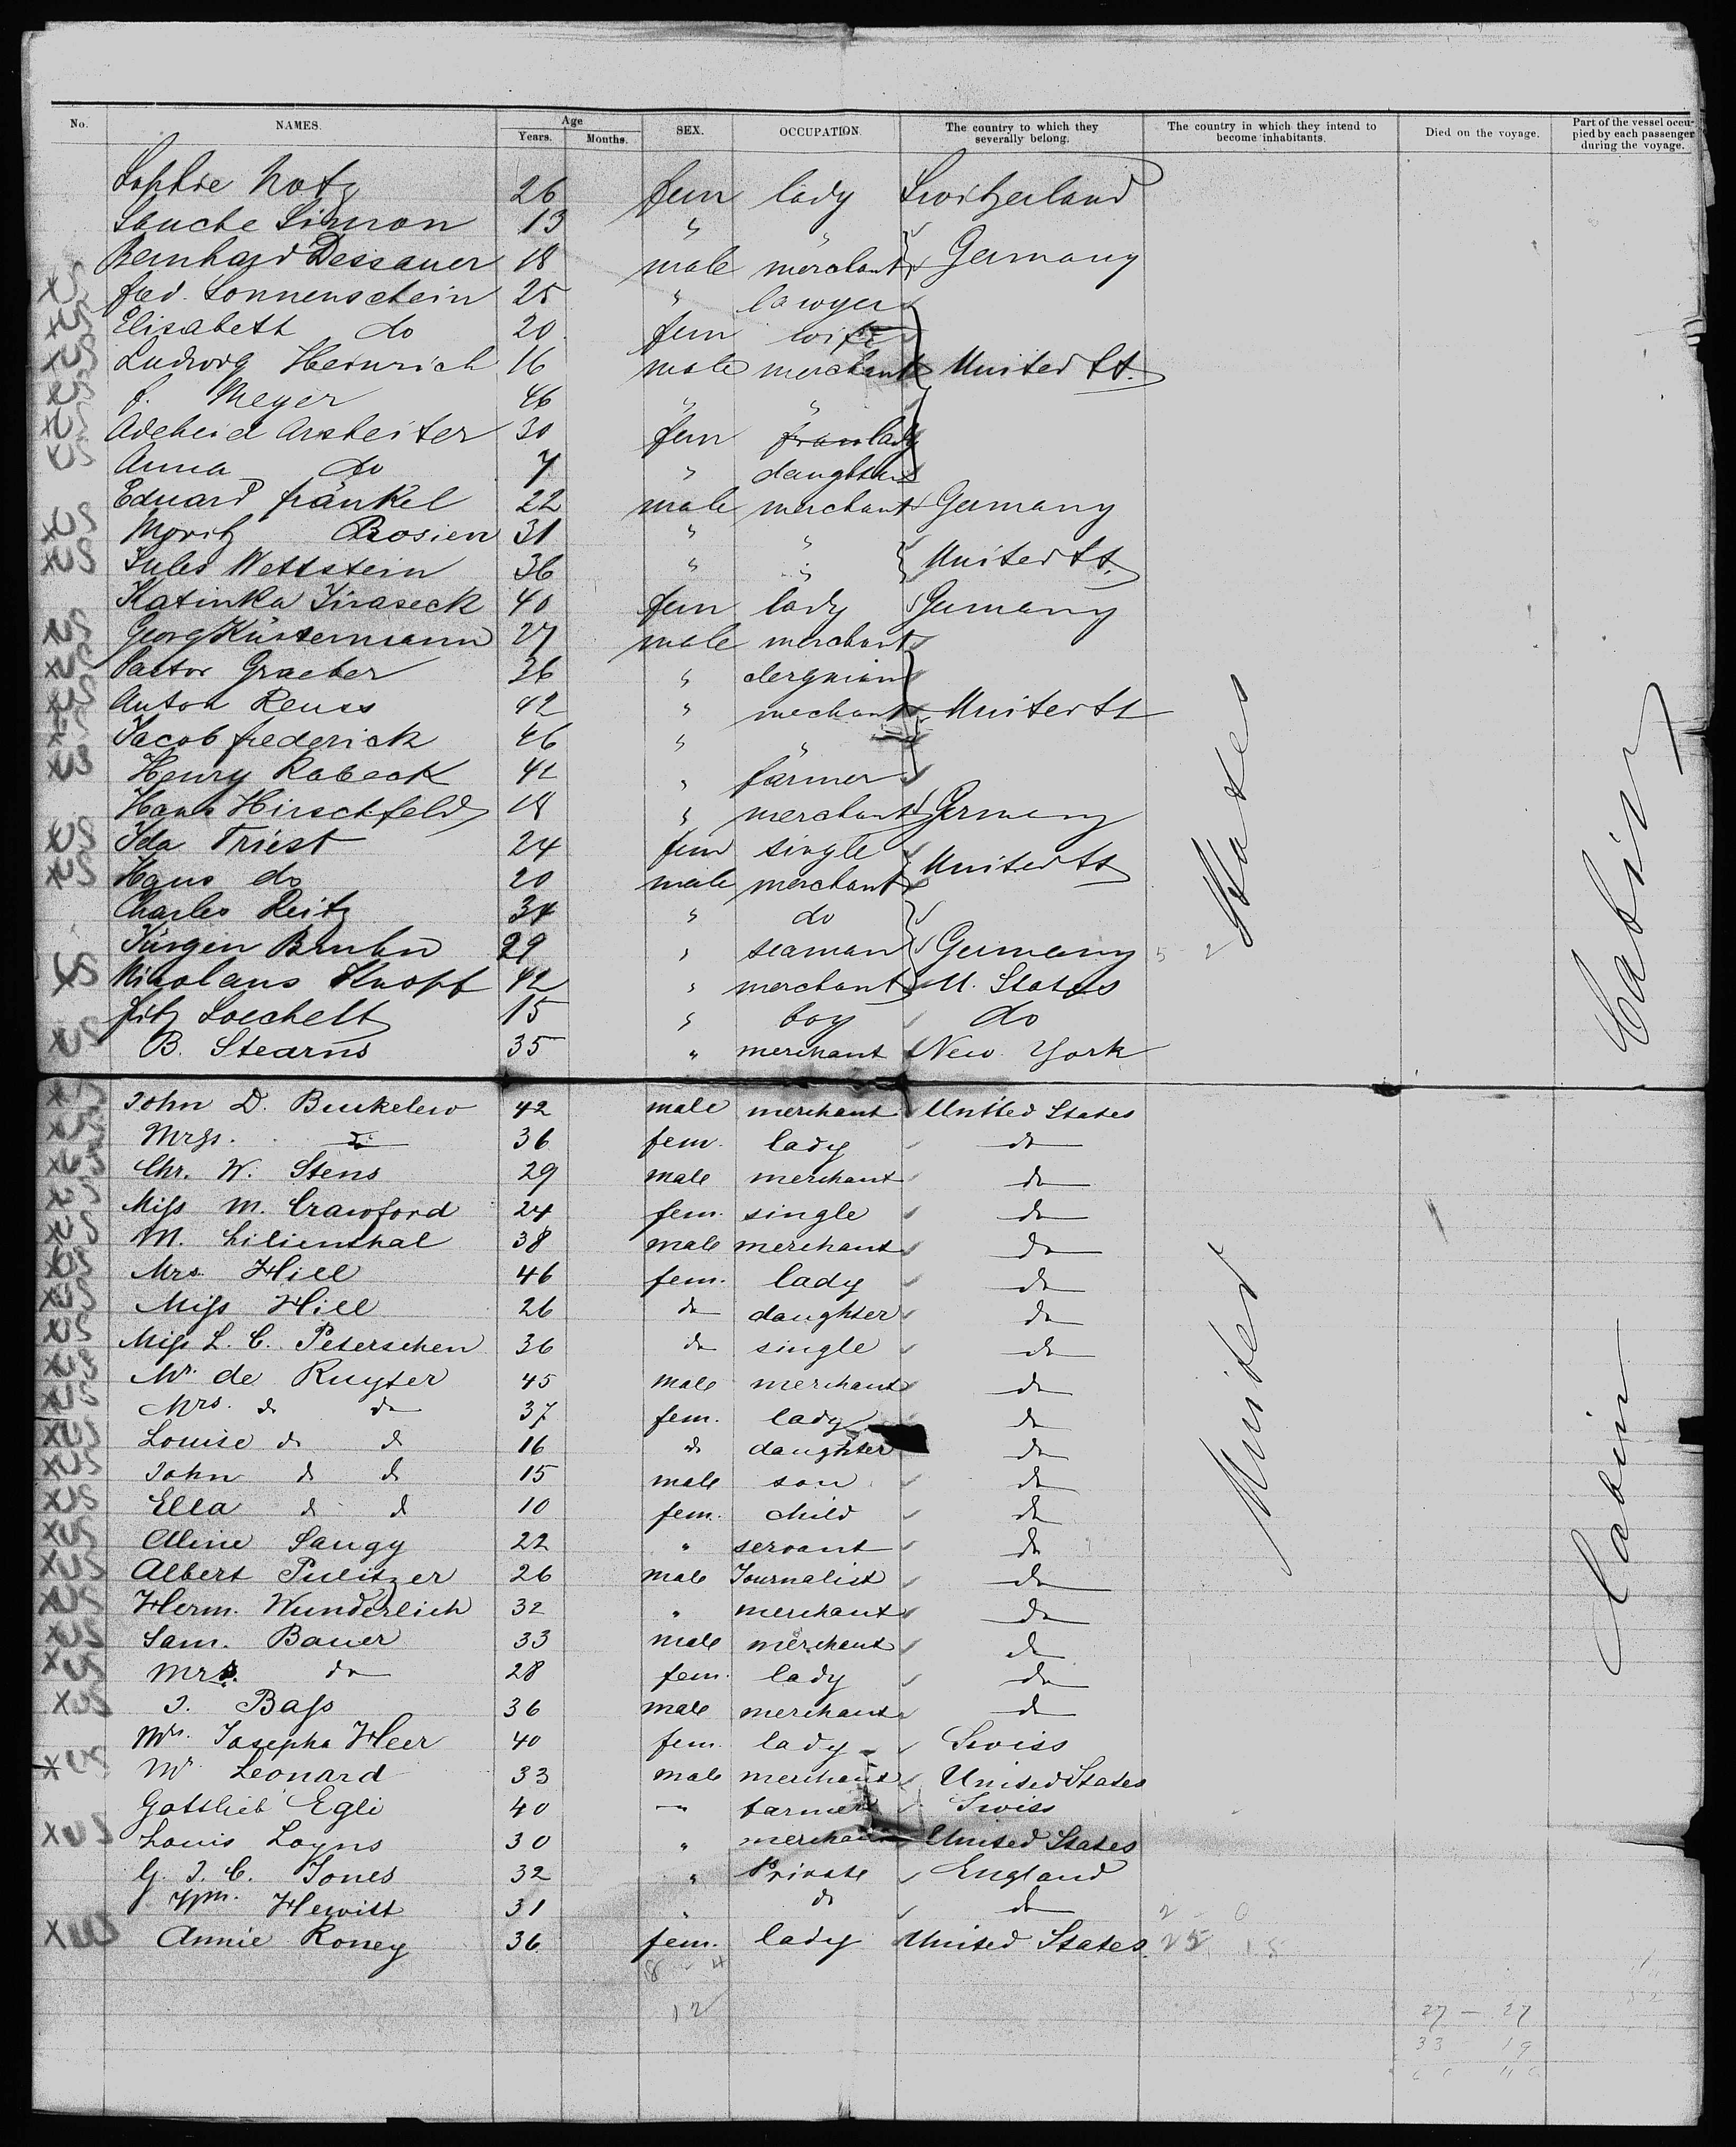 No. NAMES. Age Years. Months. SEX. OCCUPATION. The country to which they severally belong. The country in which they intend to become inhabitants. Died on the voyage. Part of the vessel occupied by each passenger during the voyage.
Sophie Notz 26 fem lady Switzerland
Simon 13 " "
Bernhard Dessauer 18 male merchant Germany
XUS Fred. Sonnenschein 25 " lawyer
XUS Elisabeth do 20 fem wife
XUS Ludwig Heinrich 16 male merchant United St.
XUS f. Meyer 46 " "
XUS Adeheid Arbeiter 30 fem lady
XUS Anna do 7 " daughter
Eduard fränkel 22 male merchant Germany
XUS Moritz Bosien 31 " "
XUS Jules Wettstein 36 " " United St.
Katinka Jiraseck 40 fem lady Germany
XUS Georg Küstermann 27 male merchant
XUS Pastor Graeber 36 " clergnian
XUS Anton Reuss 42 " mechant United St
XUS Jacob frederick 46 " "
XUS Henry Rabeck 42 " farmer
Hans Hirschfeld 18 " merchant Germany
XUS Ida Triest 24 fem single
XUS Hans do 20 male merchant United St
Charles Reitz 34 " do
Jürgen Bruhn 29 " seaman Germany 5 2
XUS Nikolaus Knopf 42 " merchant U. States
fitz Loechelt 15 " boy do
XUS B. Stearns 35 " merchant New York
XUS John D. Buckelew 42 male merchant United States
XUS Mrs. do 36 fem. lady do
XUS Chr. W. Stens 29 male merchant do
XUS Miss M. Crawford 24 fem. single do
XUS M. Lilienthal 38 male merchant do
XUS Mrs Hill 46 fem. lady do
XUS Miss Hill 26 do daughter do
XUS Miss L. C. Peterschen 36 do single do
XUS Mr. de Ruyter 45 male merchant do
XUS Mrs. do do 37 fem. lady do
XUS Louise do do 16 do daughter do
XUS John do do 15 male son do
XUS Ella do do 10 fem. child do
XUS Aline Saugy 22 " servant do
XUS Albert Pulitzer 26 male Journalist do
XUS Herm. Wunderlich 32 " merchant do
XUS Sam. Bauer 33 male merchant do
XUS Mrs. do 28 fem. lady do
XUS J. Bass 36 male merchant do
Mrs. Josepha Heer 40 fem. lady Swiss
XUS Mr Leonard 33 male merchant United States
Gottlieb Egli 40 — farmer Swiss
XUS Louis Loyns 30 " merchant United States
G. J. C. Jones 32 " Private England
Wm. Hewitt 31 " do do 2 0
XUS Annie Roney 36 fem. lady United States 25 15
12
27 — 27
33 19
United States
Cabin
Cabin